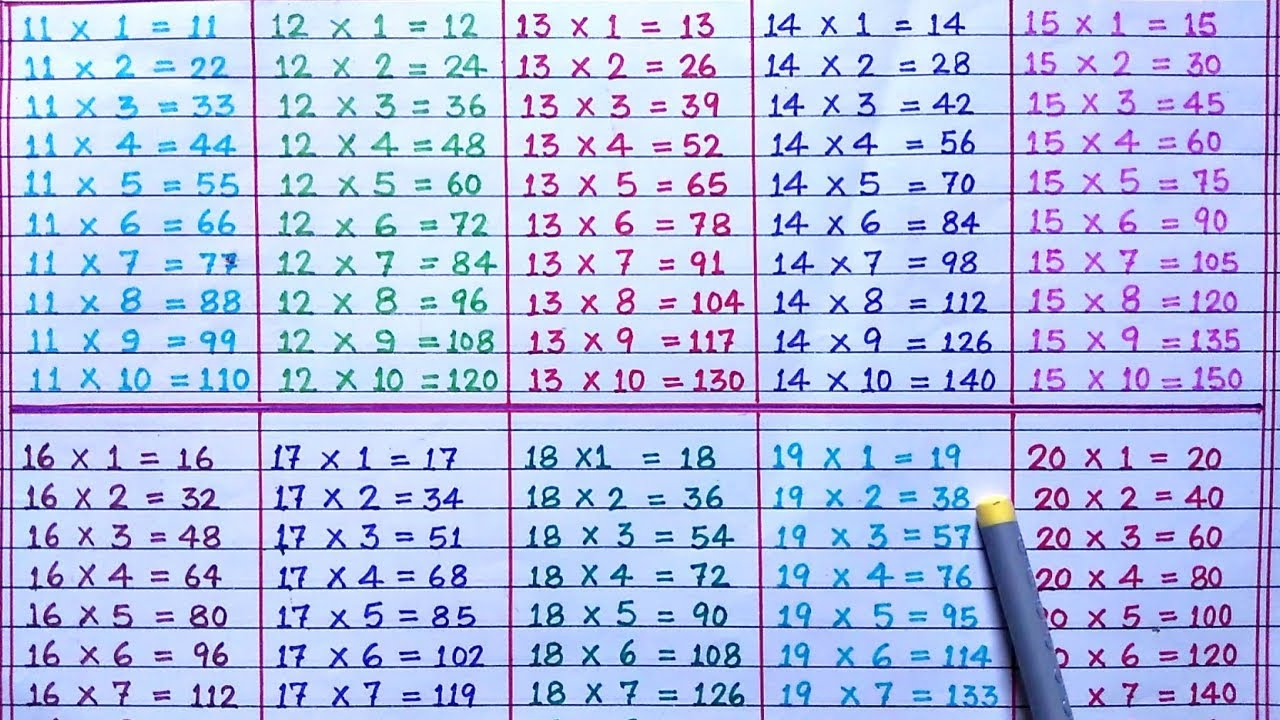 11 × 1 = 11
11 × 2 = 22
11 × 3 = 33
11 × 4 = 44
11 × 5 = 55
11 × 6 = 66
11 × 7 = 77
11 × 8 = 88
11 × 9 = 99
11 × 10 = 110
12 × 1 = 12
12 × 2 = 24
12 × 3 = 36
12 × 4 = 48
12 × 5 = 60
12 × 6 = 72
12 × 7 = 84
12 × 8 = 96
12 × 9 = 108
12 × 10 = 120
13 × 1 = 13
13 × 2 = 26
13 × 3 = 39
13 × 4 = 52
13 × 5 = 65
13 × 6 = 78
13 × 7 = 91
13 × 8 = 104
13 × 9 = 117
13 × 10 = 130
14 × 1 = 14
14 × 2 = 28
14 × 3 = 42
14 × 4 = 56
14 × 5 = 70
14 × 6 = 84
14 × 7 = 98
14 × 8 = 112
14 × 9 = 126
14 × 10 = 140
15 × 1 = 15
15 × 2 = 30
15 × 3 = 45
15 × 4 = 60
15 × 5 = 75
15 × 6 = 90
15 × 7 = 105
15 × 8 = 120
15 × 9 = 135
15 × 10 = 150
16 × 1 = 16
16 × 2 = 32
16 × 3 = 48
16 × 4 = 64
16 × 5 = 80
16 × 6 = 96
16 × 7 = 112
17 × 1 = 17
17 × 2 = 34
17 × 3 = 51
17 × 4 = 68
17 × 5 = 85
17 × 6 = 102
17 × 7 = 119
18 × 1 = 18
18 × 2 = 36
18 × 3 = 54
18 × 4 = 72
18 × 5 = 90
18 × 6 = 108
18 × 7 = 126
19 × 1 = 19
19 × 2 = 38
19 × 3 = 57
19 × 4 = 76
19 × 5 = 95
19 × 6 = 114
19 × 7 = 133
20 × 1 = 20
20 × 2 = 40
20 × 3 = 60
20 × 4 = 80
20 × 5 = 100
× 6 = 120
× 7 = 140